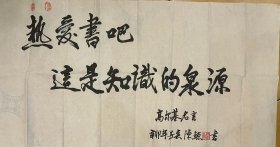 熱愛書吧
這是知識的泉源
高尔基名言